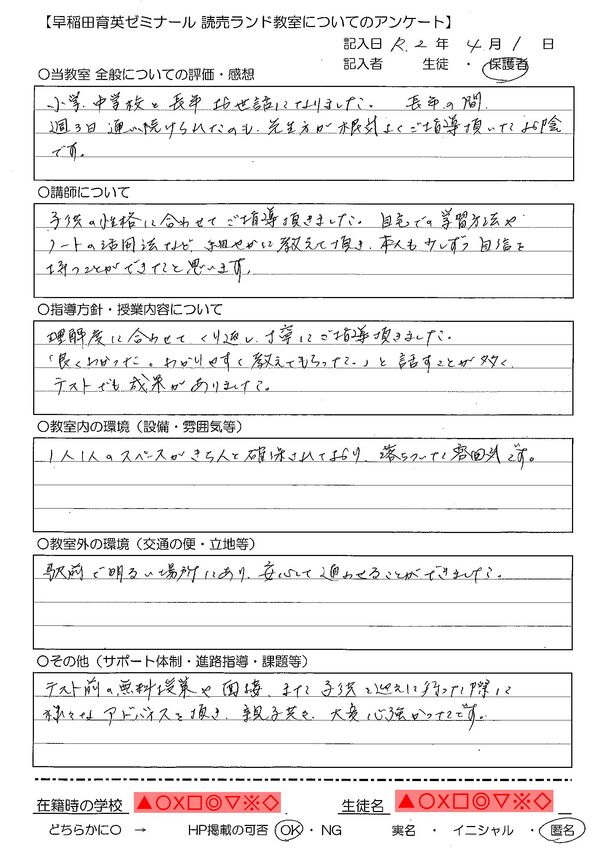 【早稲田育英ゼミナール 読売ランド教室についてのアンケート】
記入日 R.2 年 4 月 1 日
記入者 生徒 ・ 保護者
〇当教室 全般についての評価・感想
小学、中学校と長年お世話になりました。 長年の間、
週3日通い続けられたのも、先生方が根気よくご指導頂いたお陰
です。
〇講師について
子供の性格に合わせてご指導頂きました。自宅での学習方法や
ノートの活用法など細やかに教えて頂き、本人も少しずつ自信を
持つことができたと思います。
〇指導方針・授業内容について
理解度に合わせてくり返し、丁寧にご指導頂きました。
「良くわかった。わかりやすく教えてもらった。」と話すことが多く、
テストでも成果がありました。
〇教室内の環境（設備・雰囲気等）
1人1人のスペースがきちんと確保されており、落ちついた雰囲気です。
〇教室外の環境（交通の便・立地等）
駅前で明るい場所にあり、安心して通わせることができました。
〇その他（サポート体制・進路指導・課題等）
テスト前の無料授業や面接、また子供を迎えに行った際に
様々なアドバイスを頂き、親子共々、大変心強かったです。
在籍時の学校 ▲〇X□◎▽※◇ 生徒名 ▲〇X□◎▽※◇
どちらかに〇 → HP掲載の可否 OK ・ NG 実名 ・ イニシャル ・ 匿名